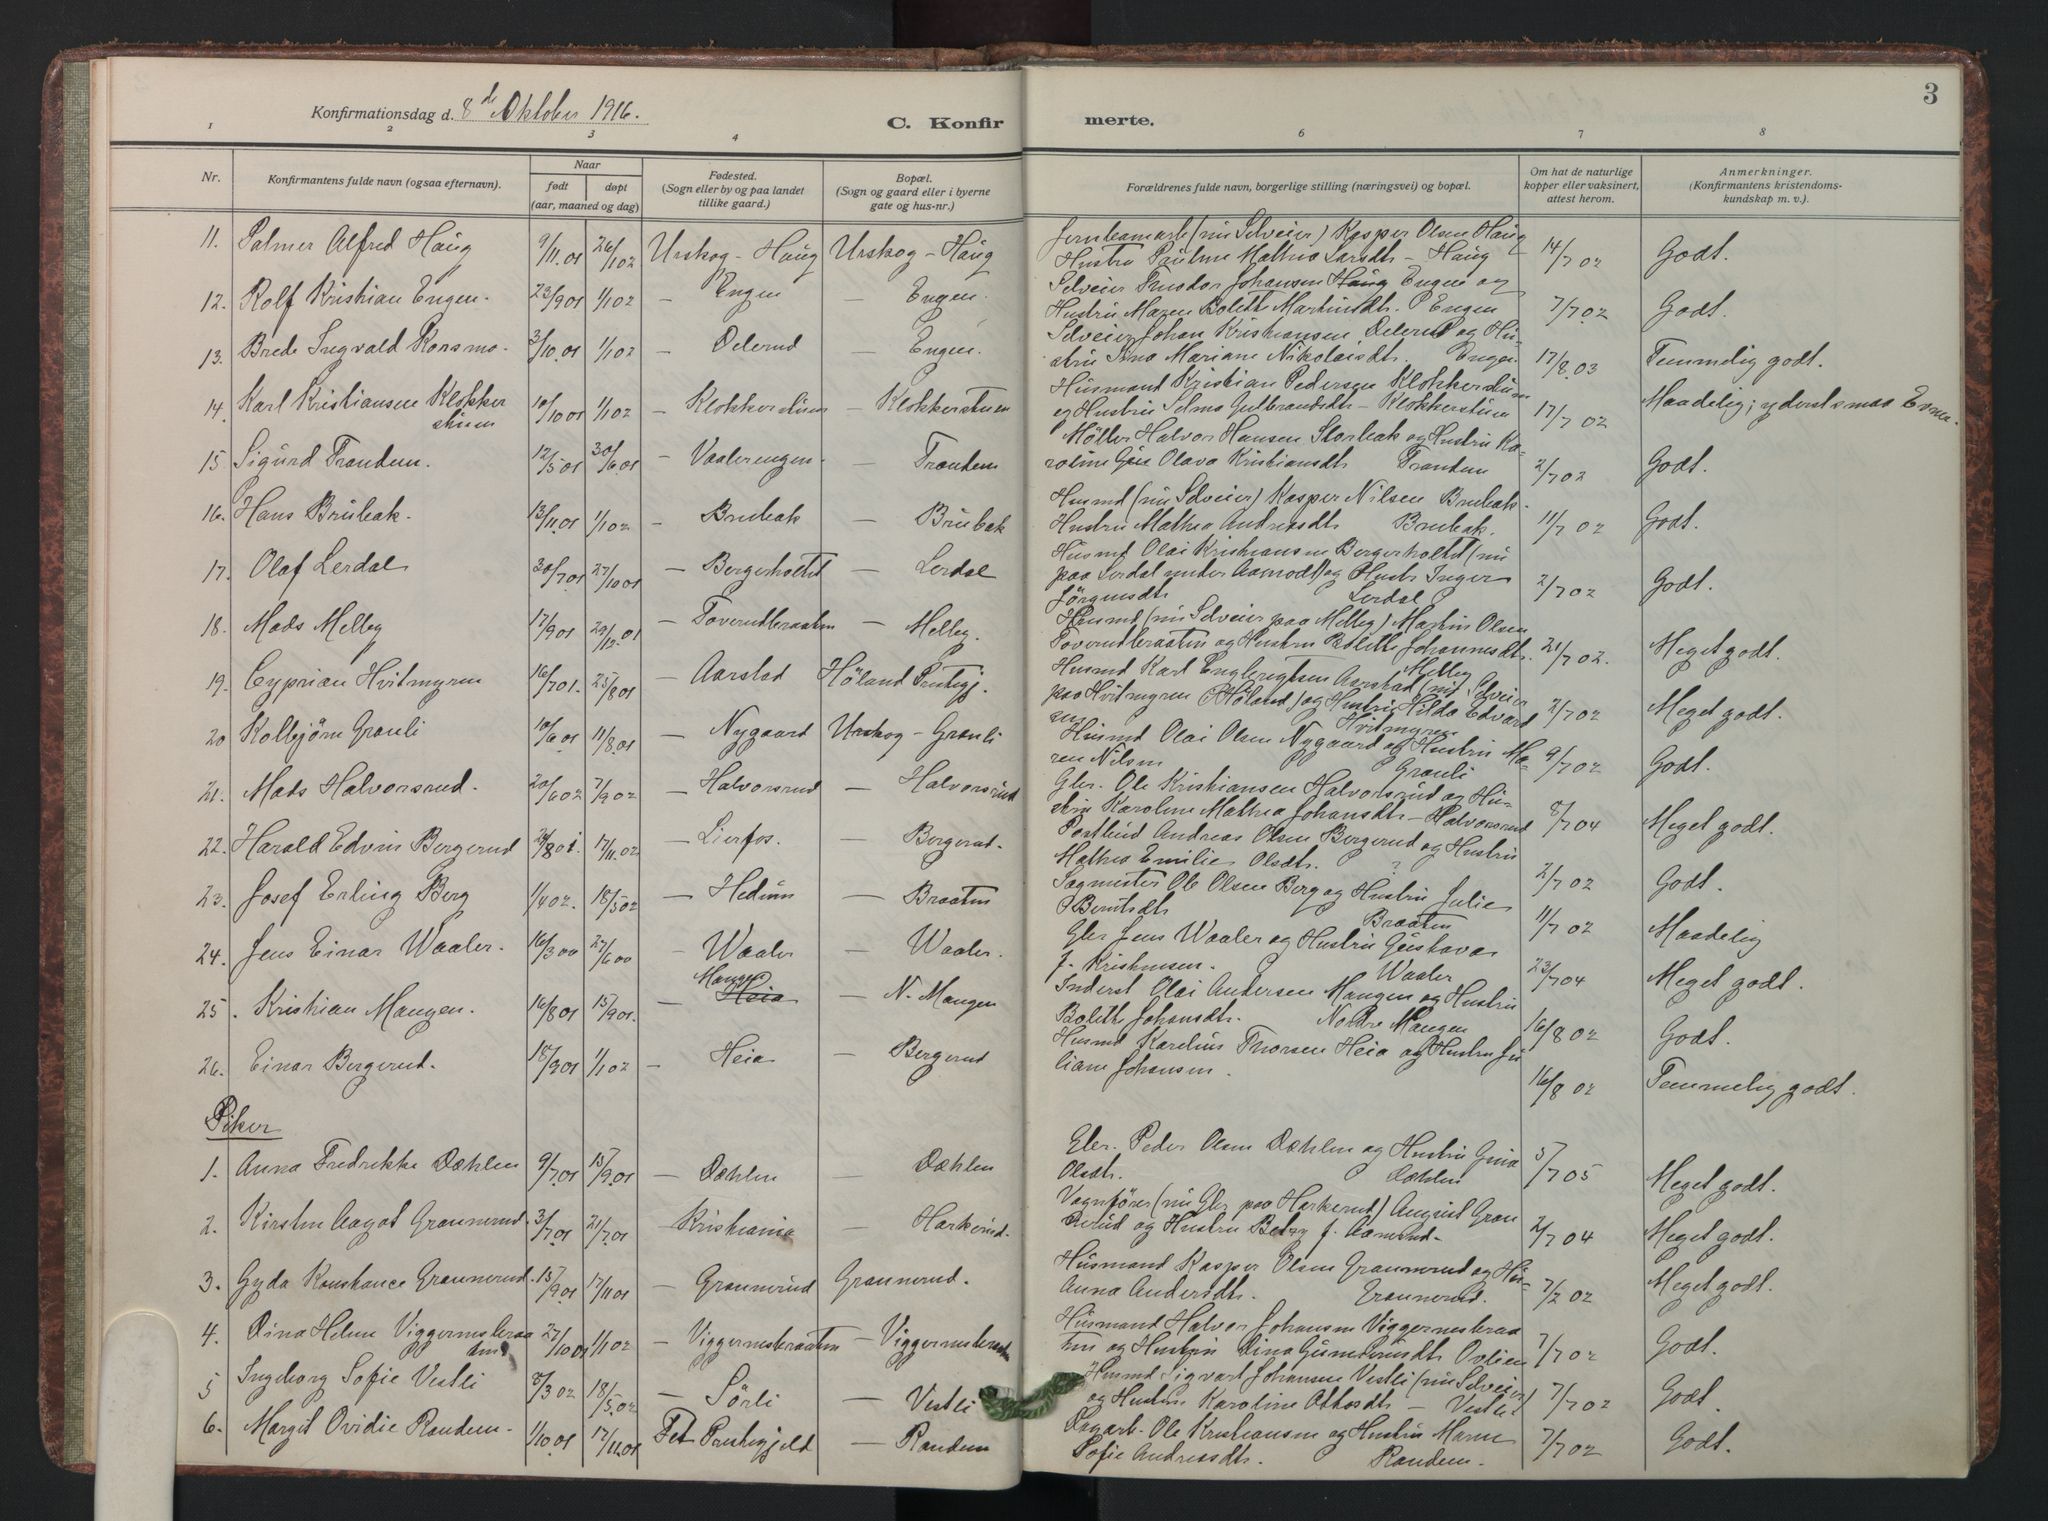 3
Konfirmationsdag d. 8de Oktober 1916.
C. Konfir merte.
1 2 3 4 6 7 8
Nr. Konfirmantens fulde navn (ogsaa efternavn). Naar født døpt (aar, maaned og dag) Fødested. (Sogn eller by og paa landet tillike gaard.) Bopæl. (Sogn og gaard eller i byerne gate og hus-nr.) Forældrenes fulde navn, borgerlige stilling (næringsvei) og bopæl. Om hat de naturlige kopper eller vaksinert, attest herom. Anmerkninger. (Konfirmantens kristendoms-kundskap m. v.).
11. Palmer Alfred Haug 9/11.01 26/1 02 Urskog - Haug Urskog - Haug Jernbanearb (nu Selveier) Kasper Olsen Haug
Hustru Pauline Mathea Larsdt - Haug 14/7 02 Godt.
12. Rolf Kristian Engen. 23/9 01 1/1 02 - Engen - Engen. Selveier Teodor Johansen Haug Engen og
Hustru Maren Bolette Martinsdt. Engen 7/7.02 Godt.
13. Brede Ingvald Korsmo. 3/10.01 1/1 02 - Delerud - Engen. Selveier Johan Kristiansen Delerud og Hu-
stru Lina Mariane Nikolaisdt. Engen. 17/8.03 Temmelig godt.
14. Karl Kristiansen Klokker 10/10 01 1/1 02 - Klokkerstuen - Klokkerstuen Husmand Kristian Pedersen Klokkerstuen
stuen og Hustru Selma Gulbrandsdt - Klokkerstuen 17/7 02 Maadelig; yderst smaa Evner.
15 Sigurd Trandem. 12/5 01 30/6 01 - Vaalerengen. - Trandem Möller Halvor Hansen Storbak og Hustru Ka-
roline Olava Kristiansdt Trandem 2/7 02 Godt.
16. Hans Brubak. 13/11.01 1/1 02 - Brubak - Brubak Husmd (nu Selveier) Kasper Nilsen Brubak.
Hustru Mathea Andreasdt Brubak. 11/7 02 Godt.
17. Olaf Lerdal 30/7.01 27/10 01 - Bergerholtet - Lerdal Husmd Olai Kristiansen Bergerholtet (nu
paa Lerdal under Aamodt) og Hustr Inger
Jörgensdt Lerdal 2/7 02 Godt.
18. Mads Melby 17/9 01 29/12.01 - Toverudbraaten - Melby. Husmd (nu Selveier paa Melby) Martin Olsen
Toverudbraaten og Hustru Bolette Johannesdt. Melby 21/7 02. Meget godt.
19. Cyprian Hvitmyren 16/7 01. 25/8 01 - Aarstad Höland Prstgj. Husmd Karl Englegtsen Aarstad (nu Selveier
paa Hvitmyren Höland) og Hustru Hilda Edvard
sen Hvitmyren 2/7 02 Meget godt.
20 Kolbjörn Granli 10/6 01 11/8.01 - Nygaard Urskog - Granli Husmd Olai Olsen Nygaard og Hustru Ma-
ren Nilsen Granli 9/7 02 Godt.
21. Mads Halvorsrud. 20/6 02 7/9 02 - Halvorsrud - Halvorsrud Gbr. Ole Kristiansen Halvorsrud og Hu-
stru Karoline Mathea Johansdt - Halvorsrud 8/7 04 Meget godt.
22. Harald Edvin Bergerud 24/8 01. 17/11.02 - Lierfos. - Bergerud. Postbud Andreas Olsen Bergerud og Hustru
Mathea Emilie Olsdt. ? 2/7 02 Godt.
23. Josef Erling Berg 1/4 02. 18/5 02 - Hedum - Braaten Sagmester Ole Olsen Berg og Hustru Julie
Berntsdt Braaten 11/7 02 Maadelig
24. Jens Einar Waaler. 16/3 00 27/6 00 - Waaler - Waaler. Gbr Jens Waaler og Hustru Gustava
f. Kristensen. Waaler 23/7 04 Meget godt.
25. Kristian Mangen. 16/8 01 15/9 01. - Mangen Heia - N. Mangen Inderst Olai Andersen Mangen og Hustru
Bolette Johansdt. Nordre Mangen 16/8 02 Godt.
26. Einar Bergerud. 18/9 01 1/1 02 - Heia - Bergerud Husmd Karelius Thorsen Heia og Hustru Ju
liane Johansen. 16/8 02 Temmelig godt.
Piker
1. Anna Fredrikke Dæhlen 9/7.01 15/9.01 - Dæhlen - Dæhlen Gbr. Peder Olsen Dæhlen og Hustru Gina
Olsdt. Dæhlen 5/7 05 Meget godt.
2. Kirsten Aagot Grannerud. 3/7.01 21/7.01 - Kristiania - Harkerud. Vognfører (nu Gbr paa Harkerud) August Gran
nerud og Hustru Betzy f. Aamerud. 2/7 04 Meget godt.
3. Gyda Konstance Grannerud. 15/9 01 17/11 01 - Grannerud Grannerud. Husmand Kasper Olsen Grannerud og Hus-
Anna Andersdt. Grannerud. 7/2 02 Meget godt.
4. Dina Helene Viggernesbraa 27/10 01 1/1 02 - Viggernesbraaten - Viggernesbraaten Husmand Halvor Johansen Viggernesbraa
ten og Hustru Dina 7/7 02 Godt.
5 Ingeborg Sofie Vestli 8/3 02 18/5.02 - Sörli - Vestli Husmd Sigvart Johansen Vestli (nu Selveier)
og Hustru Karoline Ottosdt - Vestli 7/7 02 Godt.
6. Margit Ovidie Randem. 1/10.01 17/11.01 Fet Prestegjeld - Randem Dagarb. Ole Kristiansen og Hustru Maren
Sofie Andreasdt. Randem. 7/7 02 Godt.